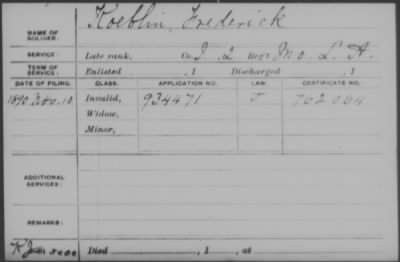 NAME OF SOLDIER: Koeblin, Frederick
SERVICE: Late rank, Co. I, 2 Reg't Mo. L. A.
TERM OF SERVICE: Enlisted , 1 Discharged , 1
DATE OF FILING. CLASS. APPLICATION NO. LAW. CERTIFICATE NO.
1890 Nov. 10 Invalid, 934471 J 762064
Widow,
Minor,
ADDITIONAL SERVICES:
REMARKS:
Died , 1 , at